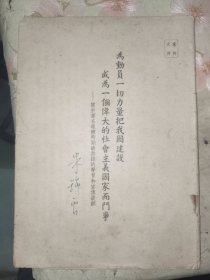 為動員一切力量把我國建設
成為一個偉大的社會主義國家而鬥爭
——關於黨在過渡時期總路線的學習和宣傳提綱